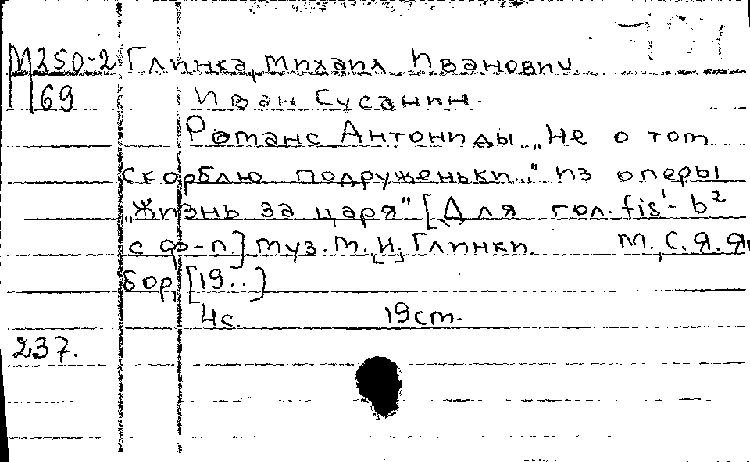 М250-2 Глинка, Михаил Иванович
П69 Иван Сусанин.
Романс Антониды „Не о том
скорблю подруженьки..." из оперы
„Жизнь за царя" [Для гол. fis¹- b²
с ф-п.] муз. М. [И.] Глинки. М., С. Я. Ям
бор, [19..]
4с. 19ст.
237.